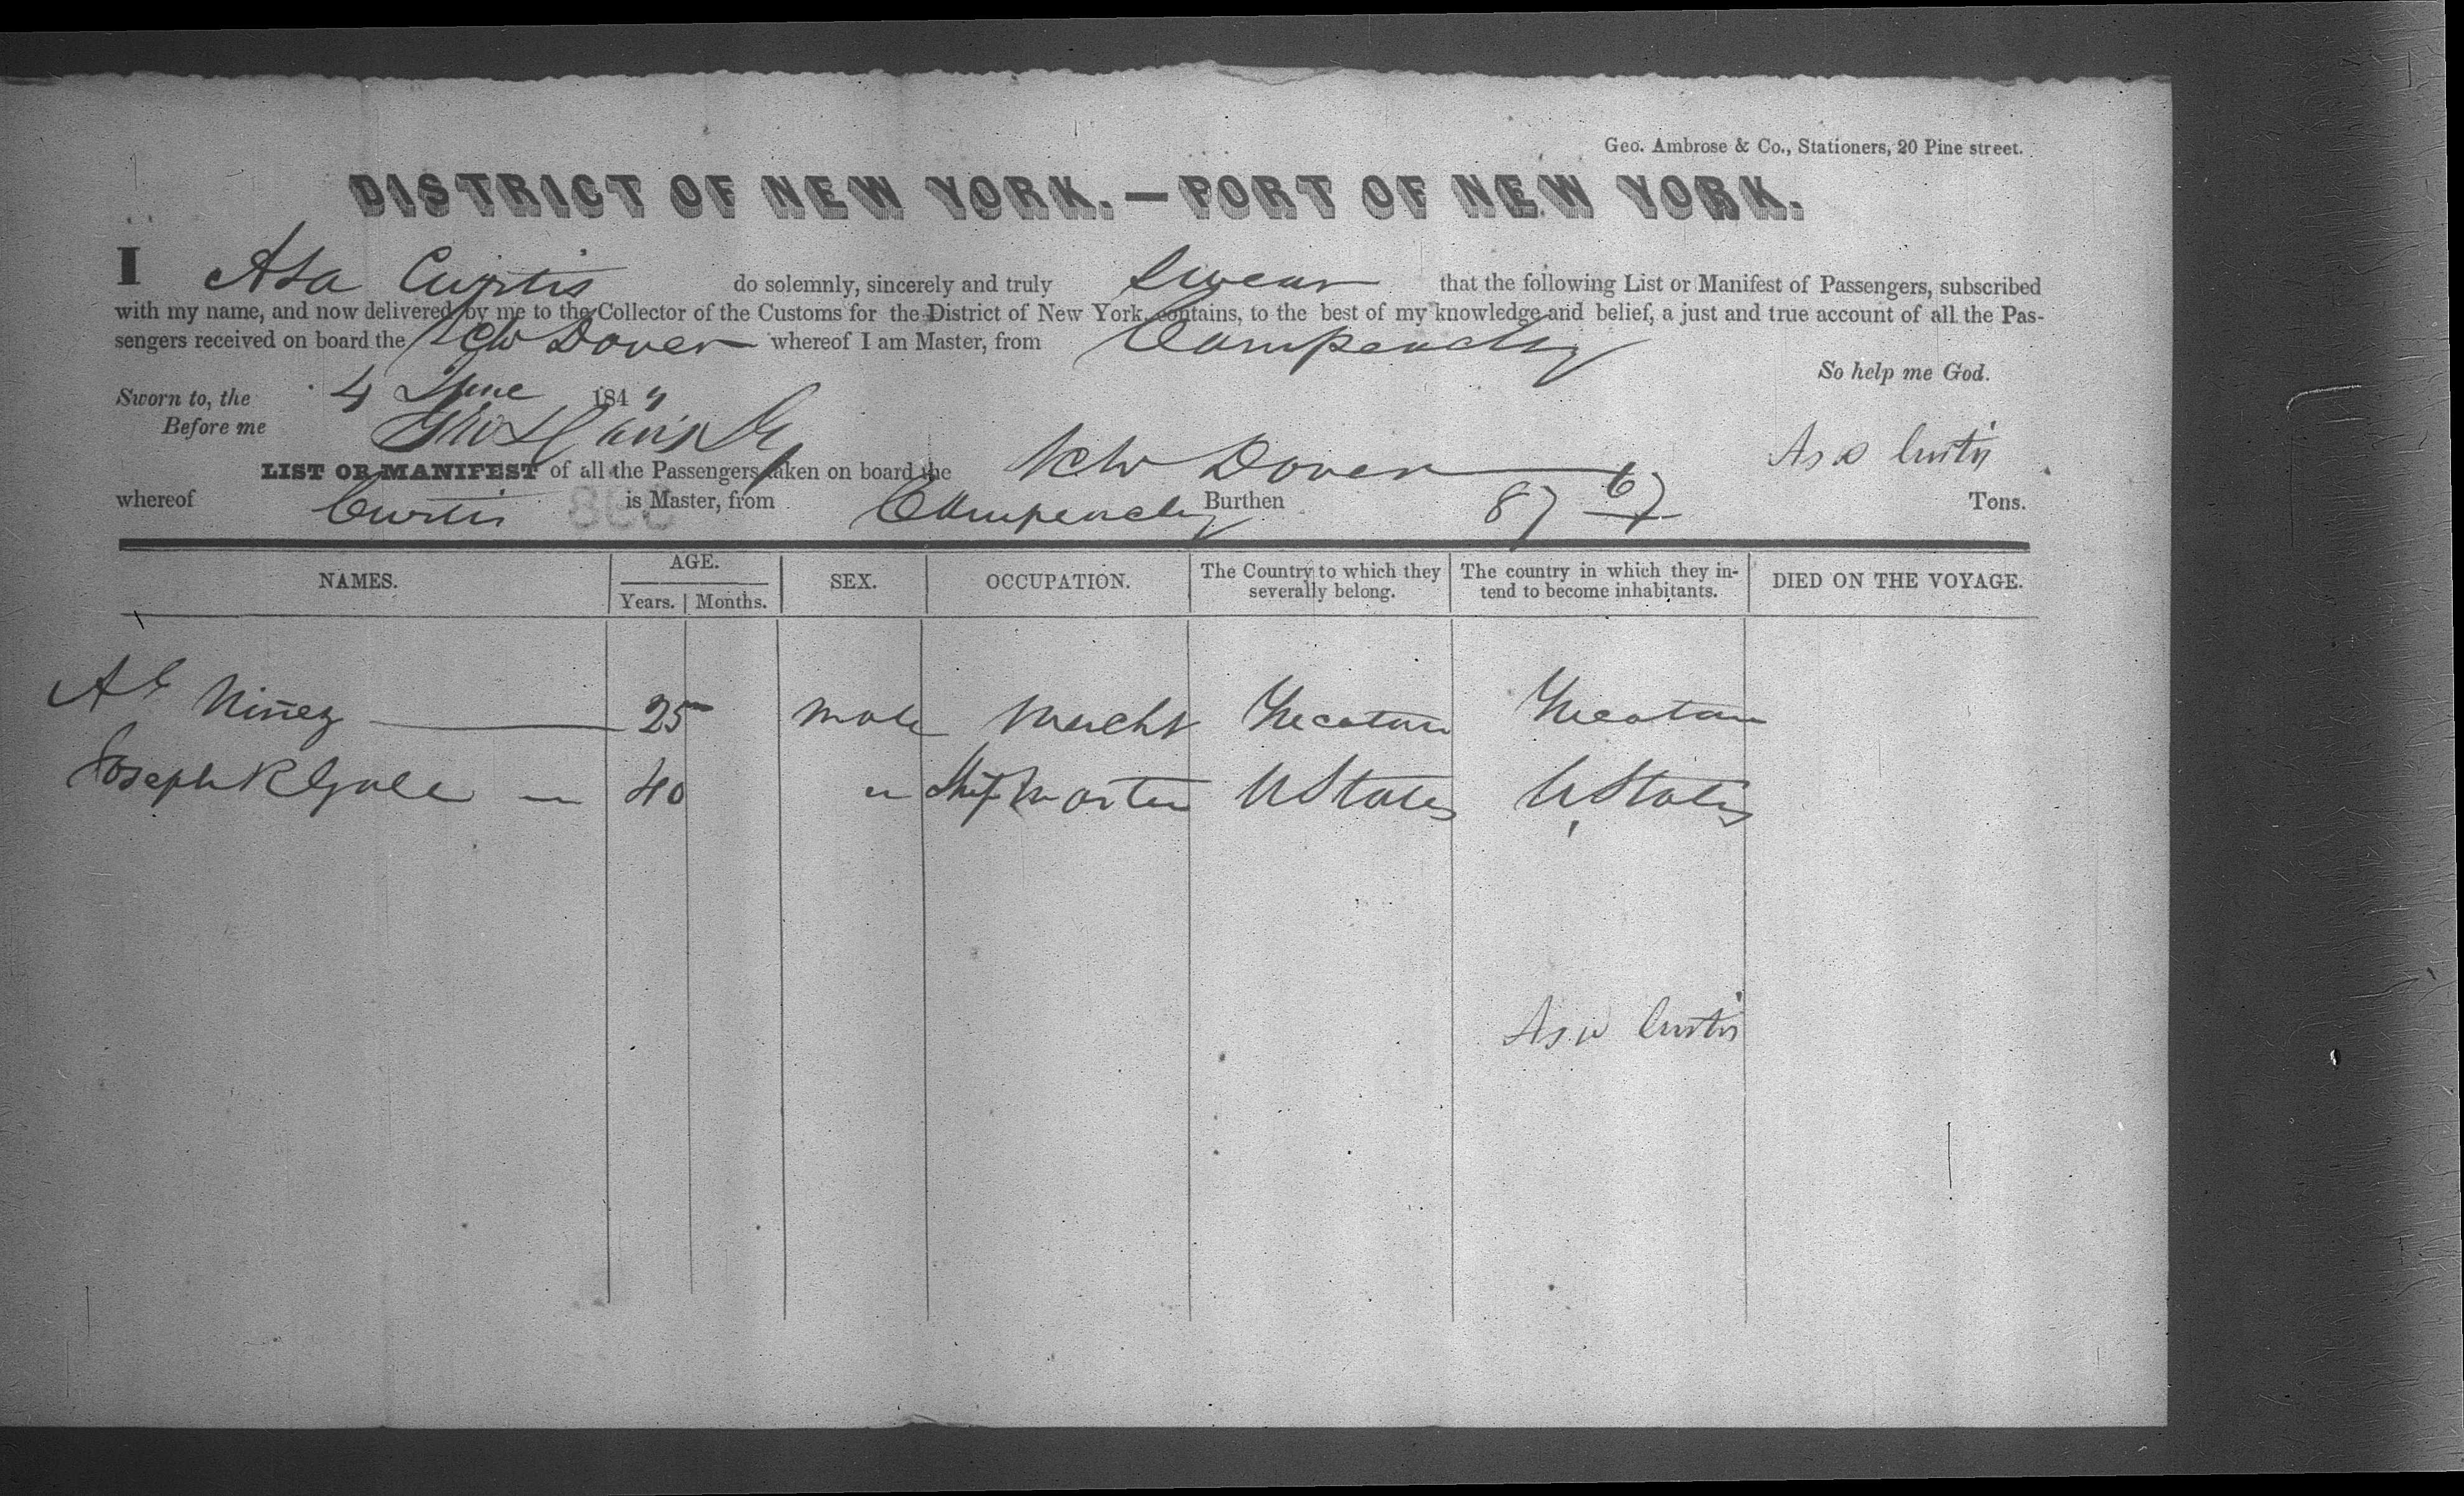 Geo. Ambrose & Co., Stationers, 20 Pine street.
DISTRICT OF NEW YORK.—PORT OF NEW YORK.
I Asa Curtis do solemnly, sincerely and truly swear that the following List or Manifest of Passengers, subscribed
with my name, and now delivered by me to the Collector of the Customs for the District of New York, contains, to the best of my knowledge and belief, a just and true account of all the Pas-
sengers received on board the Schr Dover whereof I am Master, from Campeachy
So help me God.
Sworn to, the 4 June 184
Before me
Asa Curtis
LIST OR MANIFEST of all the Passengers taken on board the Schr Dover
whereof Curtis is Master, from Campeachy Burthen 87 Tons.
NAMES. AGE. SEX. OCCUPATION. The Country to which they severally belong. The country in which they in-tend to become inhabitants. DIED ON THE VOYAGE.
Years. Months.
Niñez 25 male Mercht Yucatan Yucatan
Joseph R Gale 40 " Ship Master U States U States
Asa Curtis